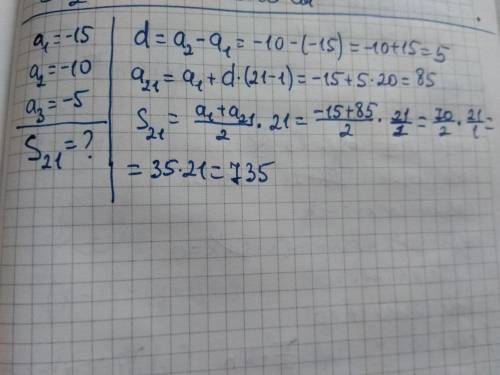 a₁=-15
a₂=-10
a₃=-5
S₂₁=?
d=a₂-a₁=-10-(-15)=-10+15=5
a₂₁=a₁+d·(21-1)=-15+5·20=85
S₂₁=(a₁+a₂₁)/2·21=(-15+85)/2·21/1=70/2·21/1=
=35·21=735